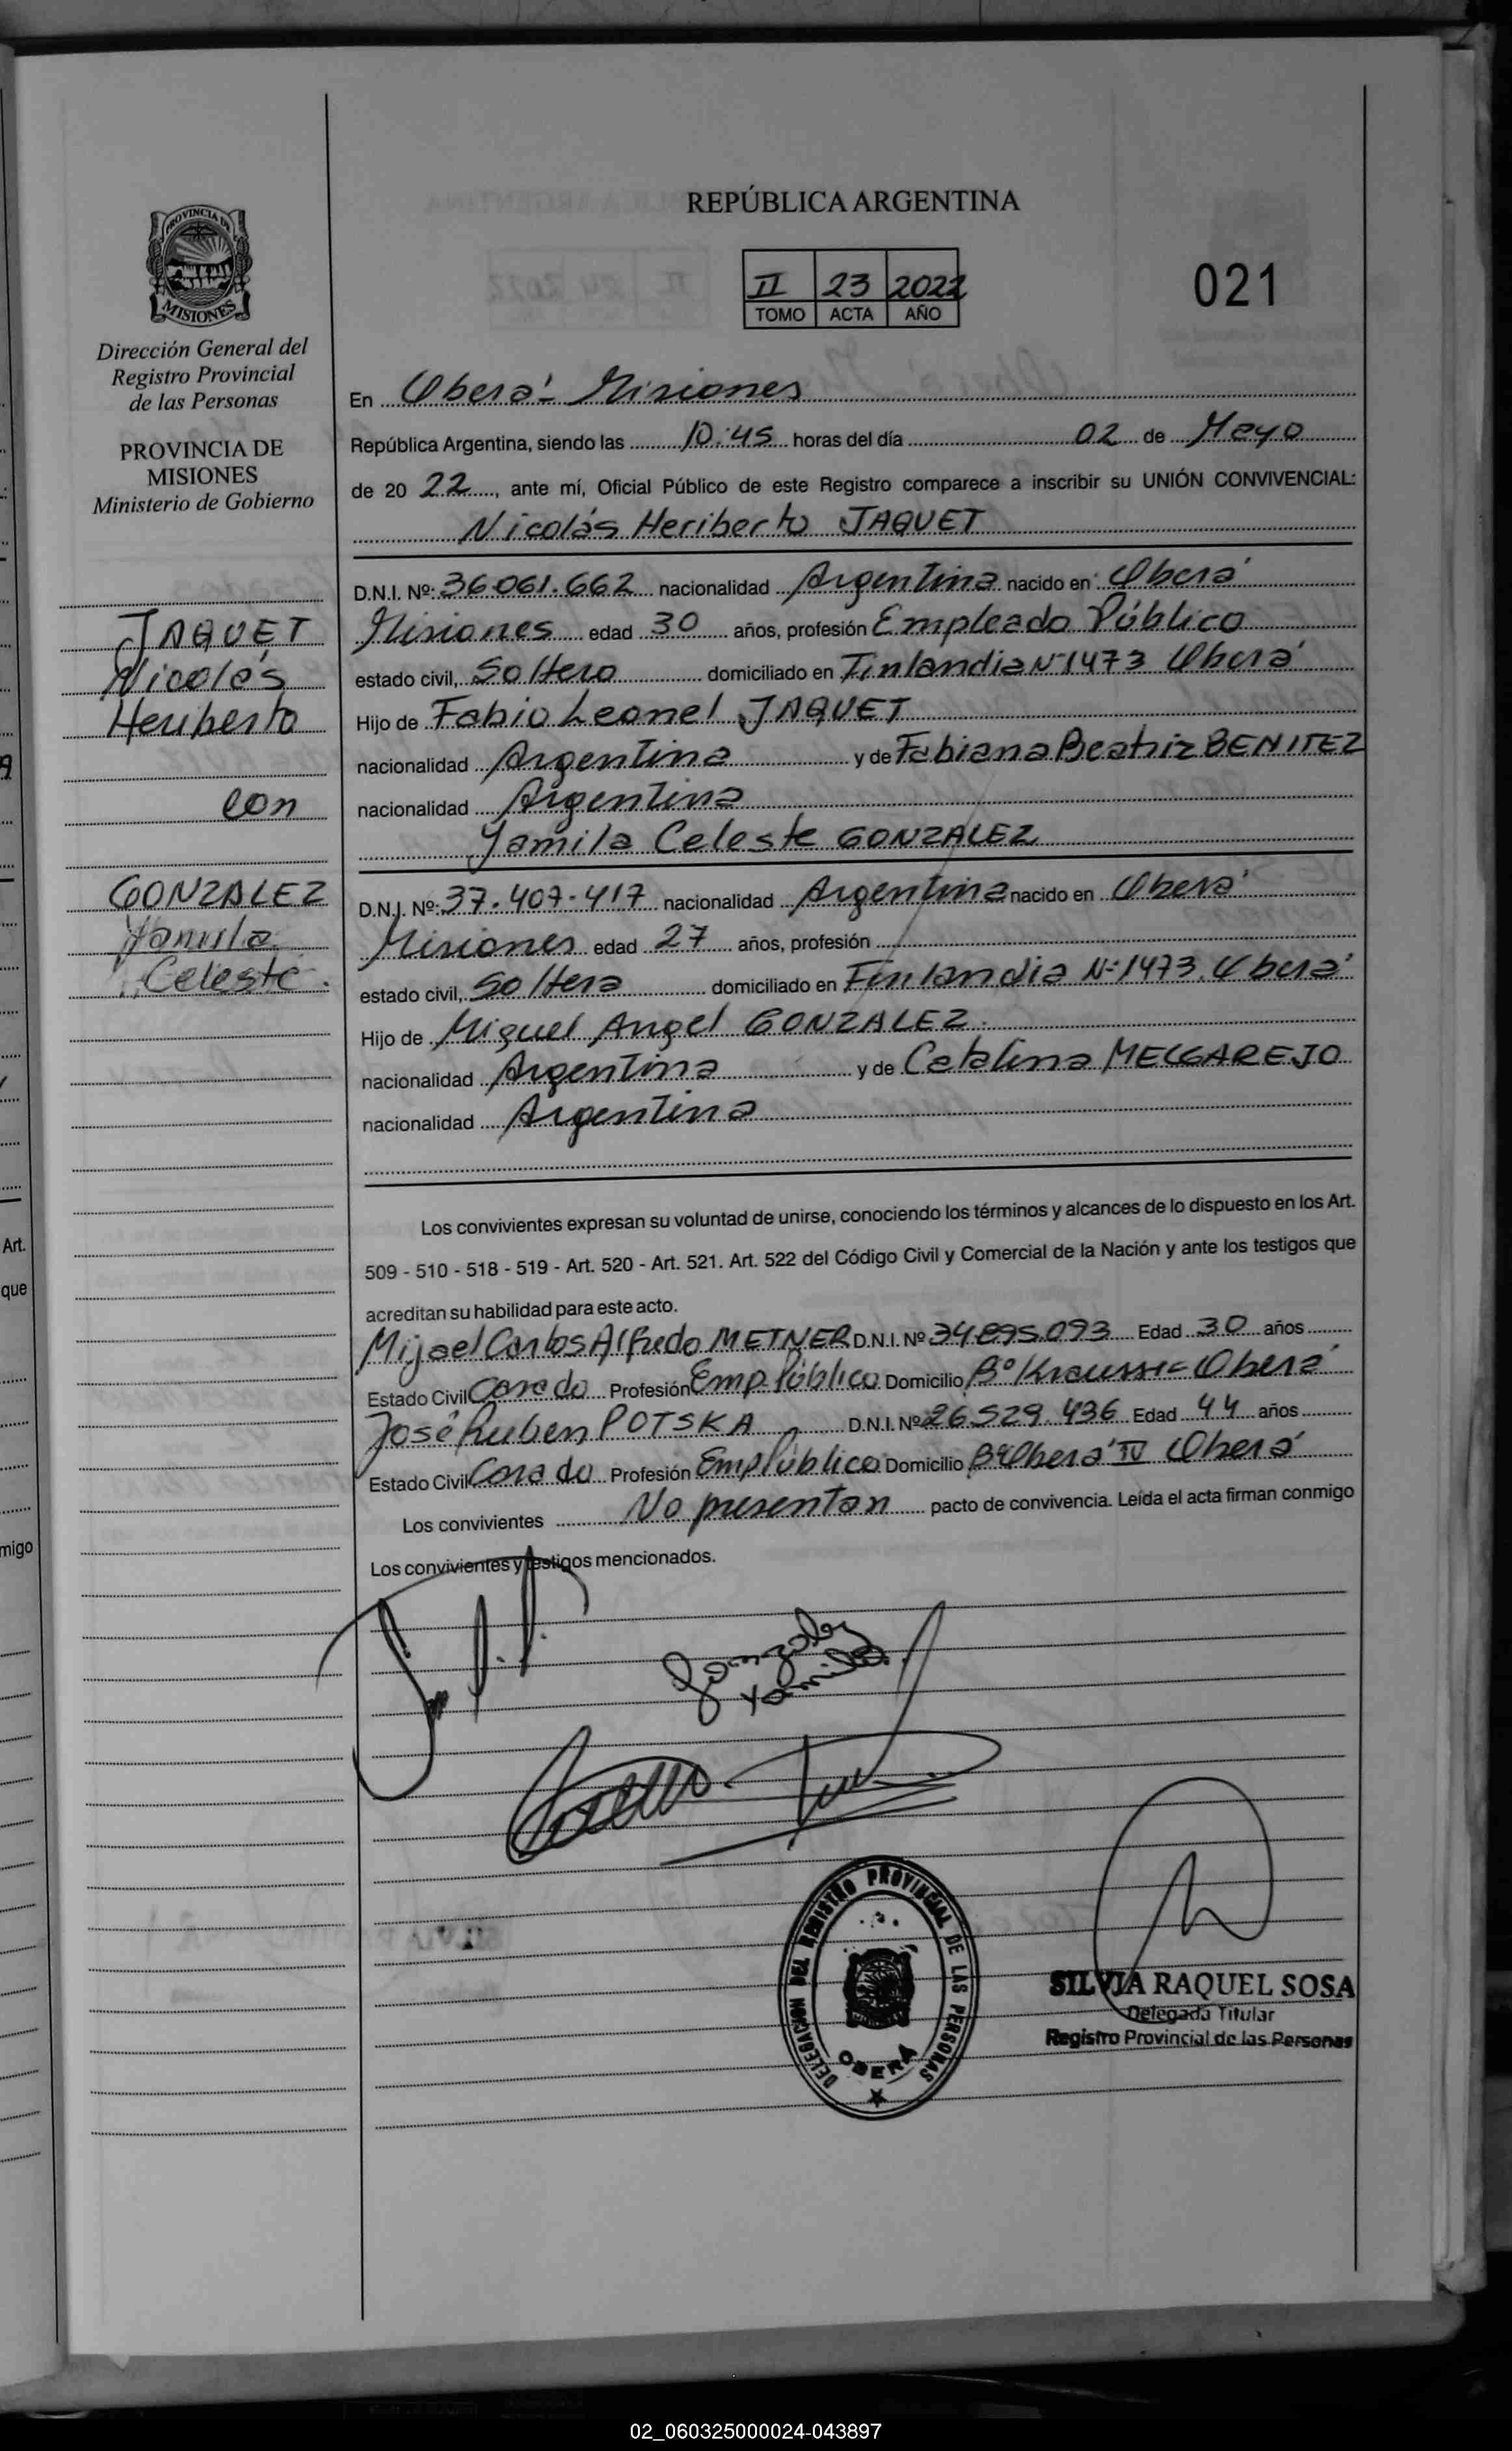 REPÚBLICA ARGENTINA
II 23 2022
TOMO ACTA AÑO
021
PROVINCIA DE
MISIONES
Dirección General del
Registro Provincial
de las Personas
PROVINCIA DE
MISIONES
Ministerio de Gobierno
JAQUET
Nicolás
Heriberto
con
GONZALEZ
Yamila
Celeste.
En Oberá - Misiones
República Argentina, siendo las 10:45 horas del día 02 de Mayo
de 20 22, ante mí, Oficial Público de este Registro comparece a inscribir su UNIÓN CONVIVENCIAL:
Nicolás Heriberto JAQUET
D.N.I. Nº: 36.061.662 nacionalidad Argentina nacido en Oberá
Misiones edad 30 años, profesión Empleado Público
estado civil, Soltero domiciliado en Finlandia Nº 1473 Oberá
Hijo de Fabio Leonel JAQUET
nacionalidad Argentina y de Fabiana Beatriz BENITEZ
nacionalidad Argentina
Yamila Celeste GONZALEZ
D.N.I. Nº: 37.407.417 nacionalidad Argentina nacido en Oberá
Misiones edad 27 años, profesión
estado civil, Soltera domiciliado en Finlandia Nº 1473. Oberá
Hijo de Miguel Angel GONZALEZ.
nacionalidad Argentina y de Catalina MELGAREJO
nacionalidad Argentina
Los convivientes expresan su voluntad de unirse, conociendo los términos y alcances de lo dispuesto en los Art.
509 - 510 - 518 - 519 - Art. 520 - Art. 521. Art. 522 del Código Civil y Comercial de la Nación y ante los testigos que
acreditan su habilidad para este acto.
Mijael Carlos Alfredo METNER D.N.I. Nº 34.895.093 Edad 30 años
Estado Civil Casado Profesión Emp. Público Domicilio Bº Krausse - Oberá
José Ruben POTSKA D.N.I. Nº 26.529.436 Edad 44 años
Estado Civil Casado Profesión Emp Público Domicilio Bº Oberá IV Oberá
Los convivientes No presentan pacto de convivencia. Leída el acta firman conmigo
Los convivientes y testigos mencionados.
Gonzalez
Yamila.
DELEGACION DEL REGISTRO PROVINCIAL DE LAS PERSONAS
OBERÁ
SILVIA RAQUEL SOSA
Delegada Titular
Registro Provincial de las Personas
Art.
que
migo
02_060325000024-043897